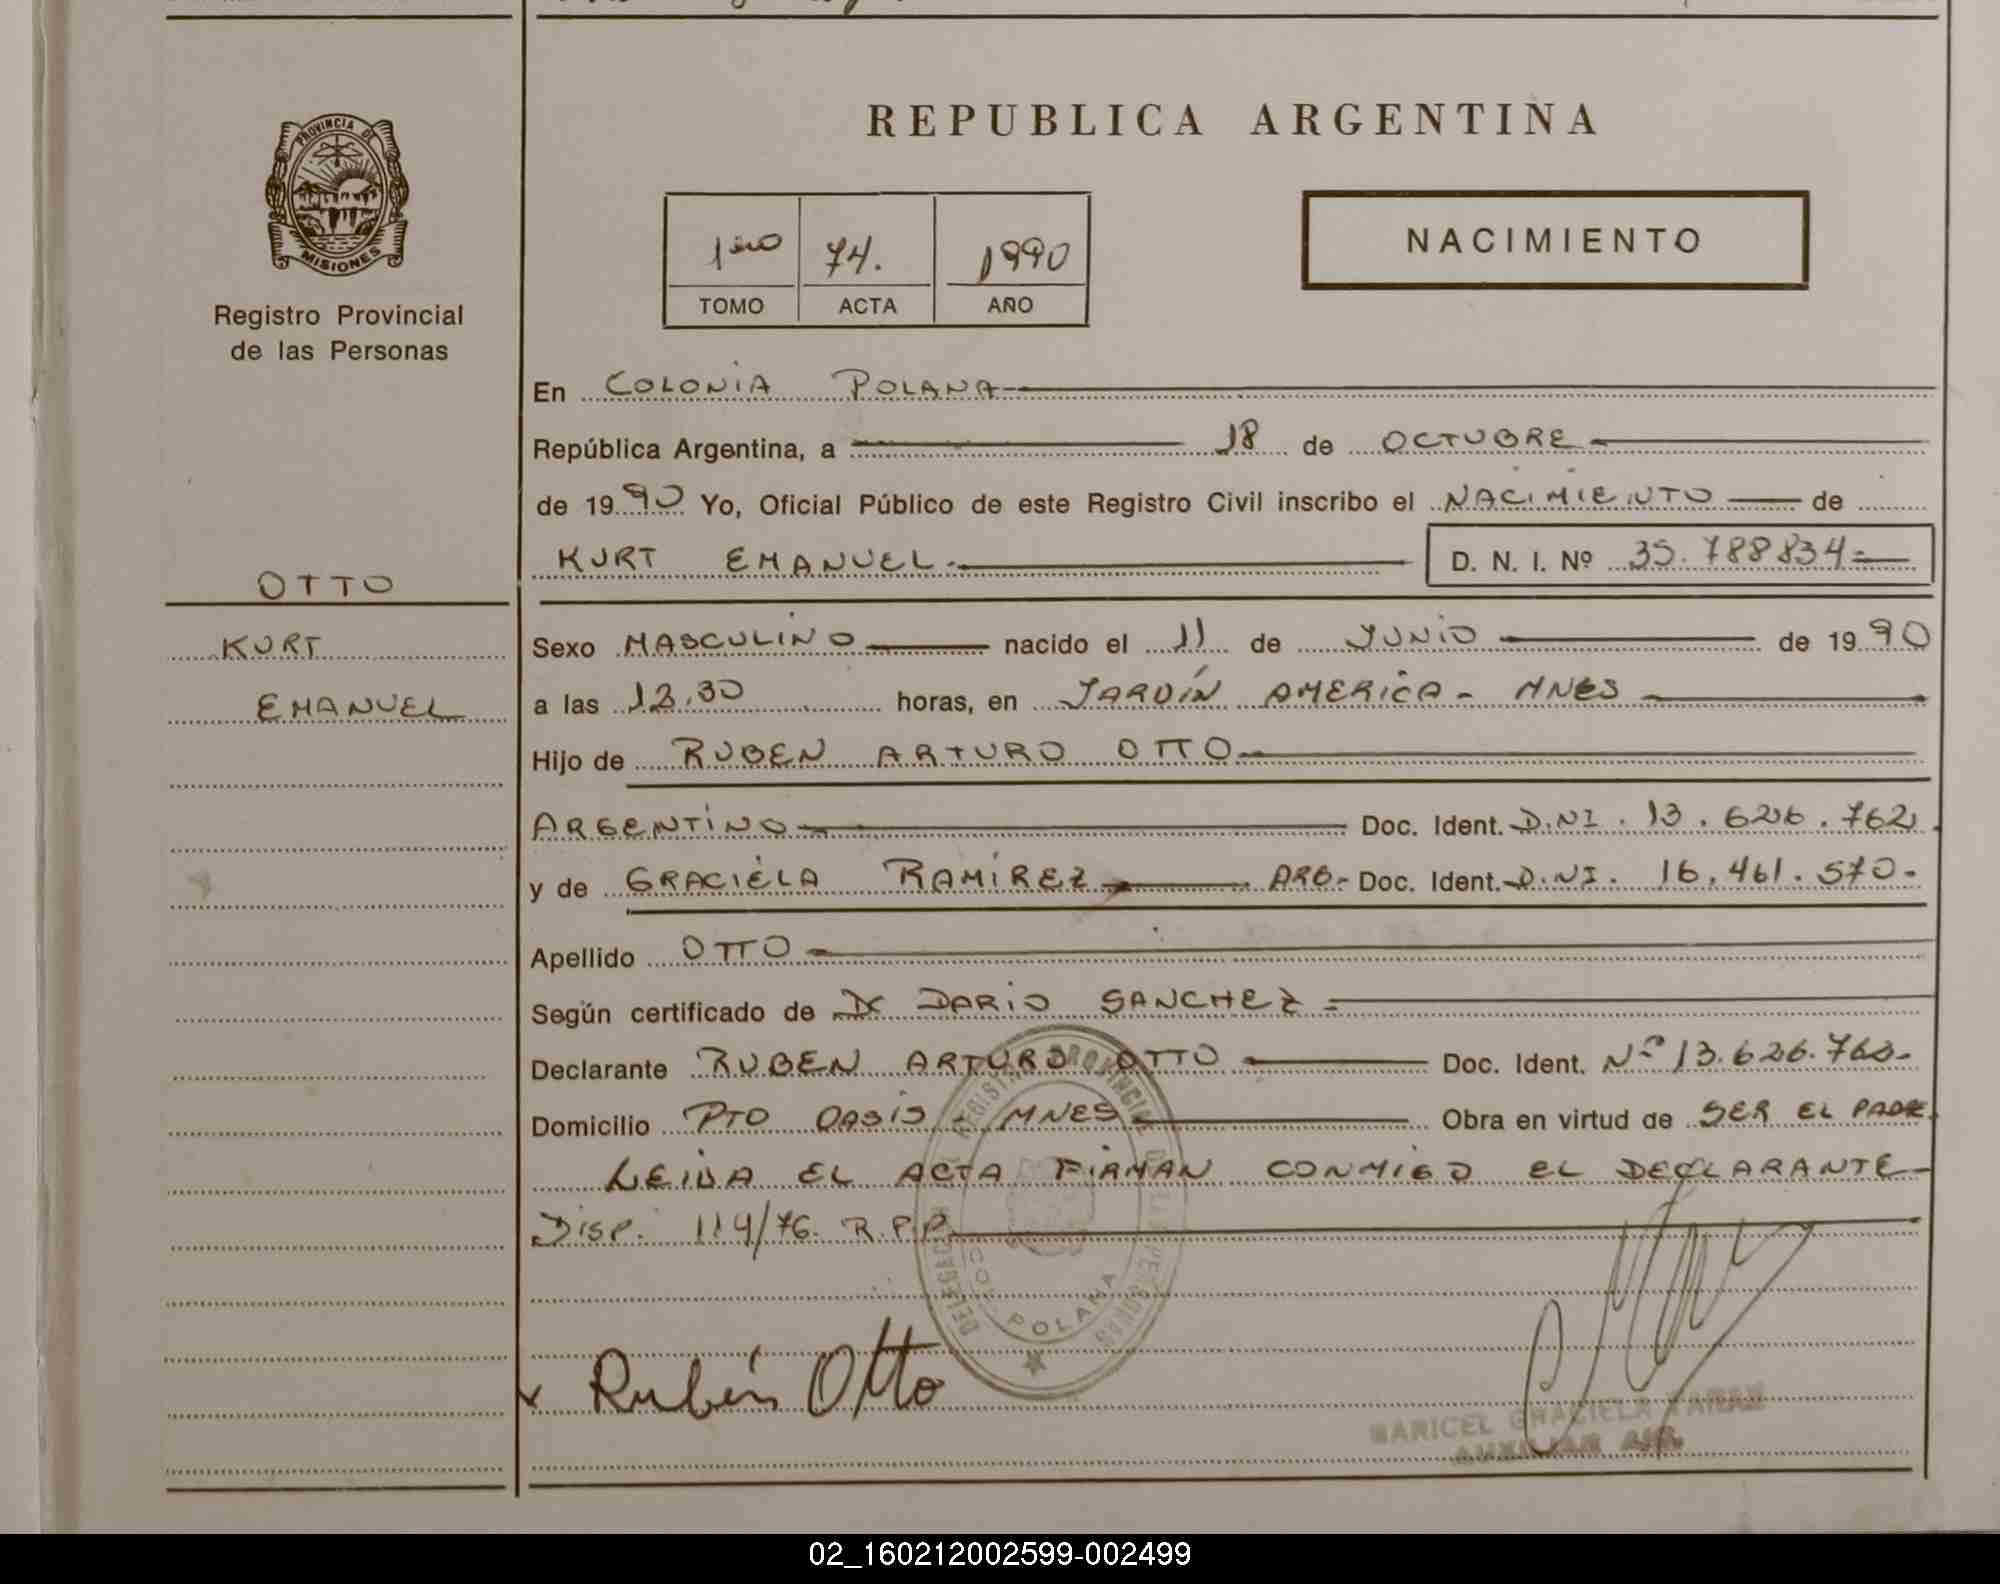 REPUBLICA ARGENTINA
PROVINCIA DE
MISIONES
Registro Provincial
de las Personas
1ero 74. 1990
TOMO ACTA AÑO
NACIMIENTO
En COLONIA POLANA
República Argentina, a 18 de OCTUBRE
de 1990 Yo, Oficial Público de este Registro Civil inscribo el NACIMIENTO de
KURT EMANUEL.
D. N. I. Nº 35.788834=
OTTO
KURT
EMANUEL
Sexo MASCULINO nacido el 11 de JUNIO de 1990
a las horas, en JARDIN AMERICA - MNES
Hijo de RUBEN ARTURO OTTO
ARGENTINO Doc. Ident. D.NI. 13.626.762
y de GRACIELA RAMIREZ ARG- Doc. Ident. D.NI. 16.461.570.
Apellido OTTO
Según certificado de DR DARIO SANCHEZ =
Declarante RUBEN ARTURO OTTO Doc. Ident. Nº
Domicilio PTO OASIS MNES Obra en virtud de SER EL PADRE.
LEIDA EL ACTA FIRMAN CONMIGO EL DECLARANTE
DISP. 114/76. R.P.P.
DELEGACION REGISTRO PROVINCIAL DE LAS PERSONAS
COL. POLANA
Rubén Otto
MARICEL GRACIELA
AUXILIAR
02_160212002599-002499